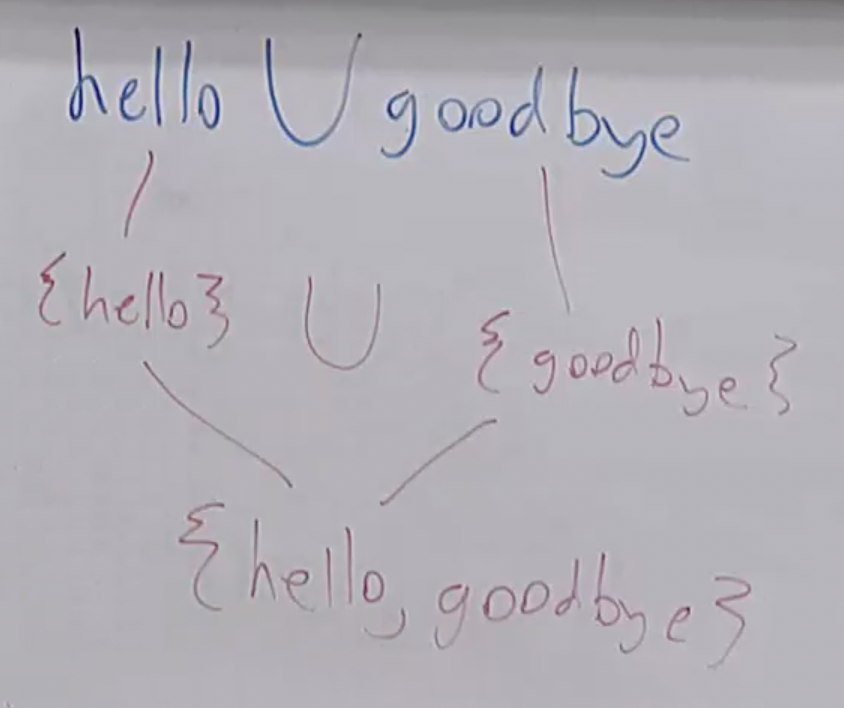 hello ∪ goodbye
{hello} ∪ {goodbye}
{hello, goodbye}